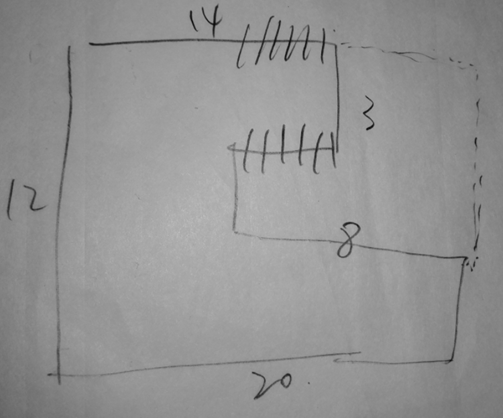 14
3
12
8
20.